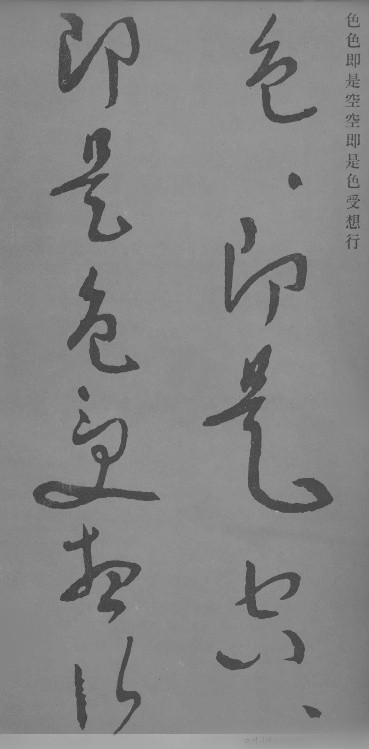 色色即是空空即是色受想行
色、即是空、
即是色受想行